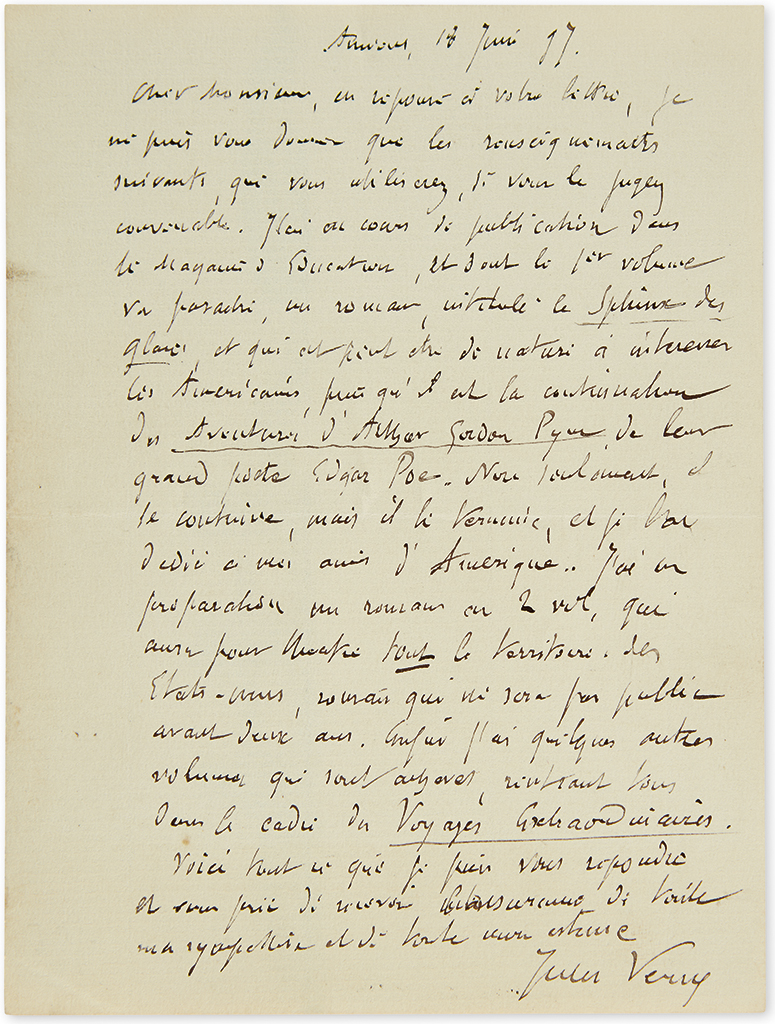 Amiens, 18 Juin 97.
Cher Monsieur, en réponse à votre lettre, je
ne puis vous donner que les renseignements
suivants, que vous utiliserez, si vous le jugez
convenable. J'ai en cours de publication dans
le Magasin d'Education, et dont le 1er volume
va paraître, un roman, intitulé le Sphinx des
glaces, et qui est peut être de nature à intéresser
les Américains, puisqu'il est la continuation
des Aventures d'Arthur Gordon Pym, de leur
grand poète Edgar Poe. Non seulement, il
le continue, mais il le termine, et je l'ai
dédié à mes amis d'Amérique.. J'ai en
préparation un roman en 2 vol, qui
aura pour théâtre tout le territoire des
Etats-unis, roman qui ne sera pas publié
avant deux ans. Enfin j'ai quelques autres
volumes qui sont achevés, rentrant tous
dans le cadre des Voyages Extraordinaires.
Voici tout ce que je puis vous répondre
et vous prie de recevoir l'assurance de toute
ma sympathie et de toute mon estime
Jules Verne